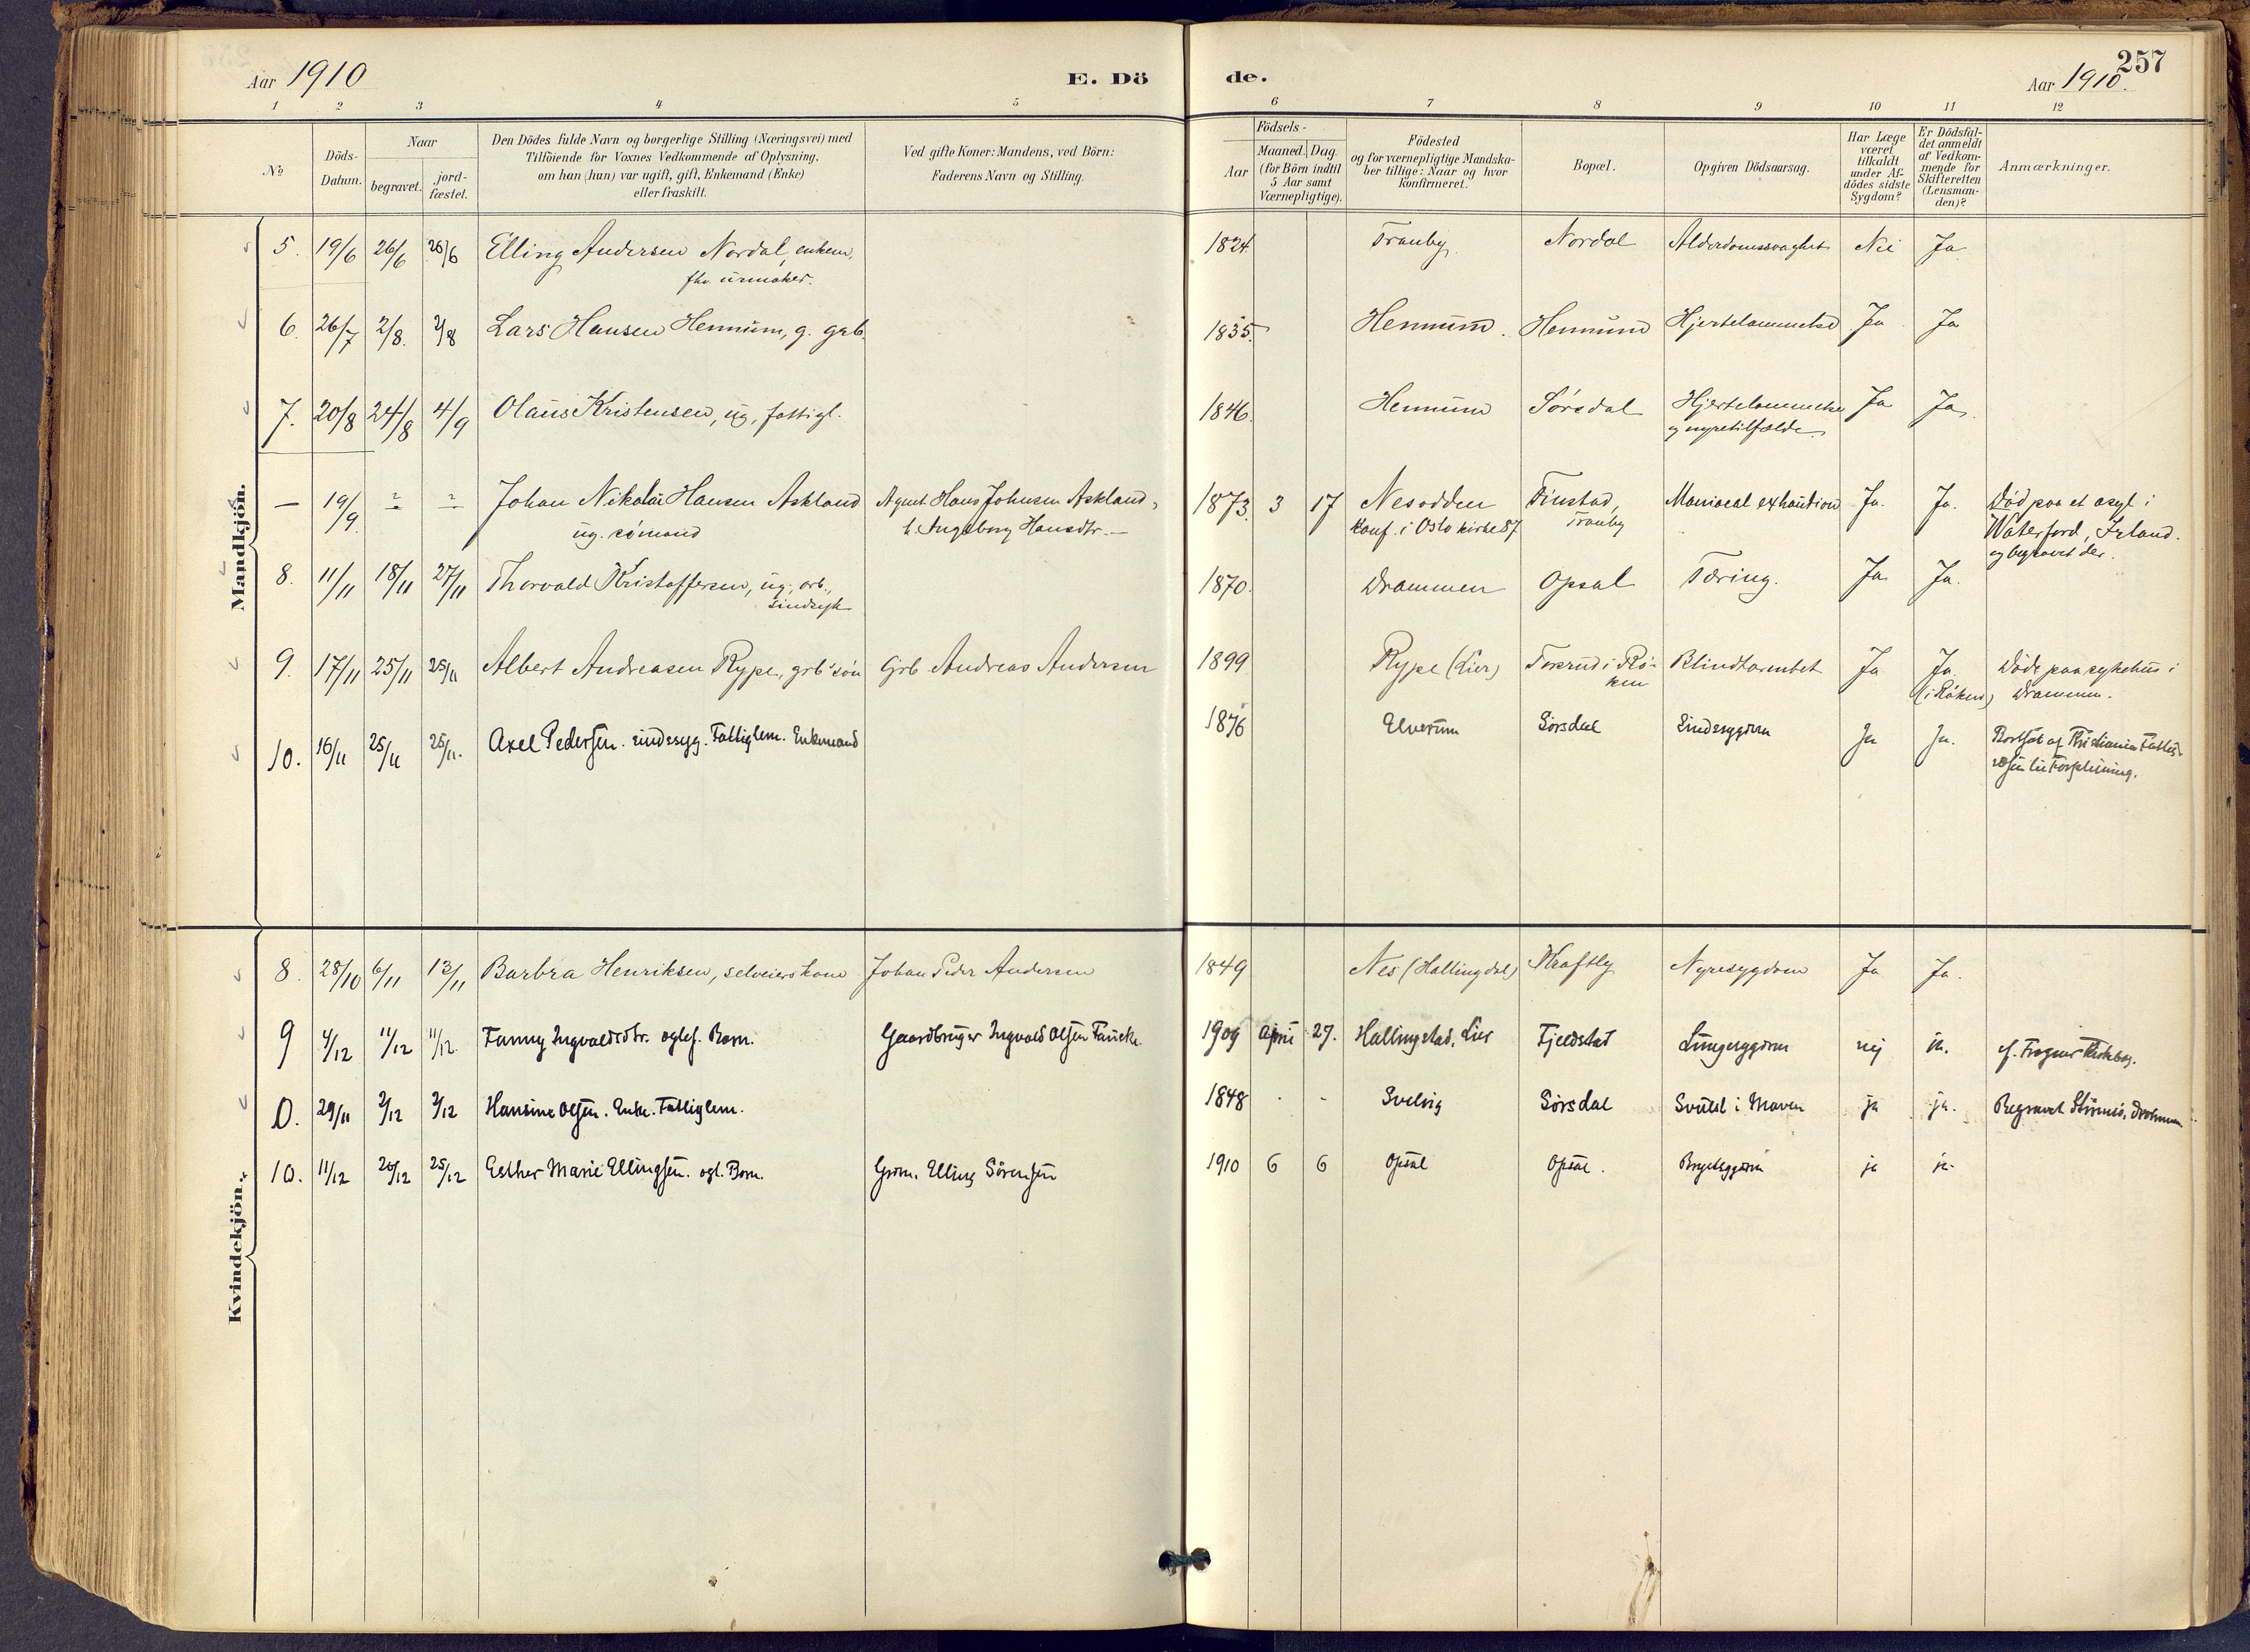 257
Aar 1910
E. Dö
de.
Aar 1910.
1 2 3 4 5 6 7 8 9 10 11 12
No
Döds-
Datum.
Naar
begravet.
jord-
fæstet.
Den Dödes fulde Navn og borgerlige Stilling (Næringsvei) med
Tilföiende for Voxnes Vedkommende af Oplysning,
om han (hun) var ugift, gift, Enkemand (Enke)
eller fraskilt.
Ved gifte Koner: Mandens, ved Börn:
Faderens Navn og Stilling.
Födsels-
Aar
Maaned. Dag.
(for Börn indtil
5 Aar samt
Værnepligtige).
Födested
og for værnepligtige Mandska-
ber tillige: Naar og hvor
konfirmeret.
Bopæl.
Opgiven Dödsaarsag.
Har Læge
været
tilkaldt
under Af-
dödes sidste
Sygdom?
Er Dödsfal-
det anmeldt
af Vedkom-
mende for
Skifteretten
(Lensman-
den)?
Anmærkninger.
Mandkjön.
5. 19/6 26/6 26/6 Elling Andersen Nordal, enkem, 1824. Tranby. Nordal Alderdomssvaghet Nei Ja
fhv. urmaker.
6. 26/7 2/8. 2/8 Lars Hansen Hennum, g. grb. 1835. Hennum. Hennum Hjertelammelse Ja Ja
7. 20/8 24/8 4/9 Olaus Kristensen, ug, fattigl. 1846. Hennum Sørsdal Hjertelammelse Ja Ja.
og nyretilfælde.
— 19/9. Johan Nikolai Hansen Askland Agent Hans Johnsen Askland, 1873. 3 17 Nesodden Finstad, Maniacal exhaustion Ja. Ja. Død paa et asyl i
ug. sømand h. Ingeborg Hansdtr. — Konf. i Oslo kirke 87 Tranby Waterford, Irland.
og begravet der.
8. 11/11 18/11 27/11 Thorvald Kristoffersen, ug, arb., 1870. Drammen Opsal Tæring. Ja Ja.
sindsyk
9. 17/11 25/11 25/11 Albert Andreasen Rype, grb's søn Grb Andreas Andersen 1899 Rype (Lier) i Rø- Blindtarmbet. Ja Ja. Døde paa sykehus i
ken (i Røken) Drammen.
10. 16/11 25/11 25/11. Axel Pedersen. sindssyg. Fattiglem. Enkemand 1876 Elverum Sørsdal Sindssygdom Ja Ja. Bortsat af Kristiania Fattig-
væsen til Forpleining.
Kvindekjön.
8. 28/10 6/11 13/11 Barbra Henriksen, selveierskone Johan Peder Andersen 1849 Nes (Hallingdal) Nyresygdom Ja Ja.
9 4/12 11/12 11/12. Fanny Ingvaldsdtr. egtef. Barn. Gaardbruger Ingvald Olsen 1909 April 27. Hallingstad, Lier Fjeldstad Lungesygdom nej ja. cf. Frogner Kirkebog.
0. 29/11 2/12 2/12 Hansine Olsen. Enke. Fattiglem. 1848 - - Svelvig Sørsdal Svulst i Maven ja ja. Begravet Strømsø, Drammen.
10. 11/12 20/12 25/12 Esther Marie Ellingsen. egt. Barn. Grbr. Elling Sørensen 1910 6 6 Opsal Opsal. Brystsygdom ja ja.